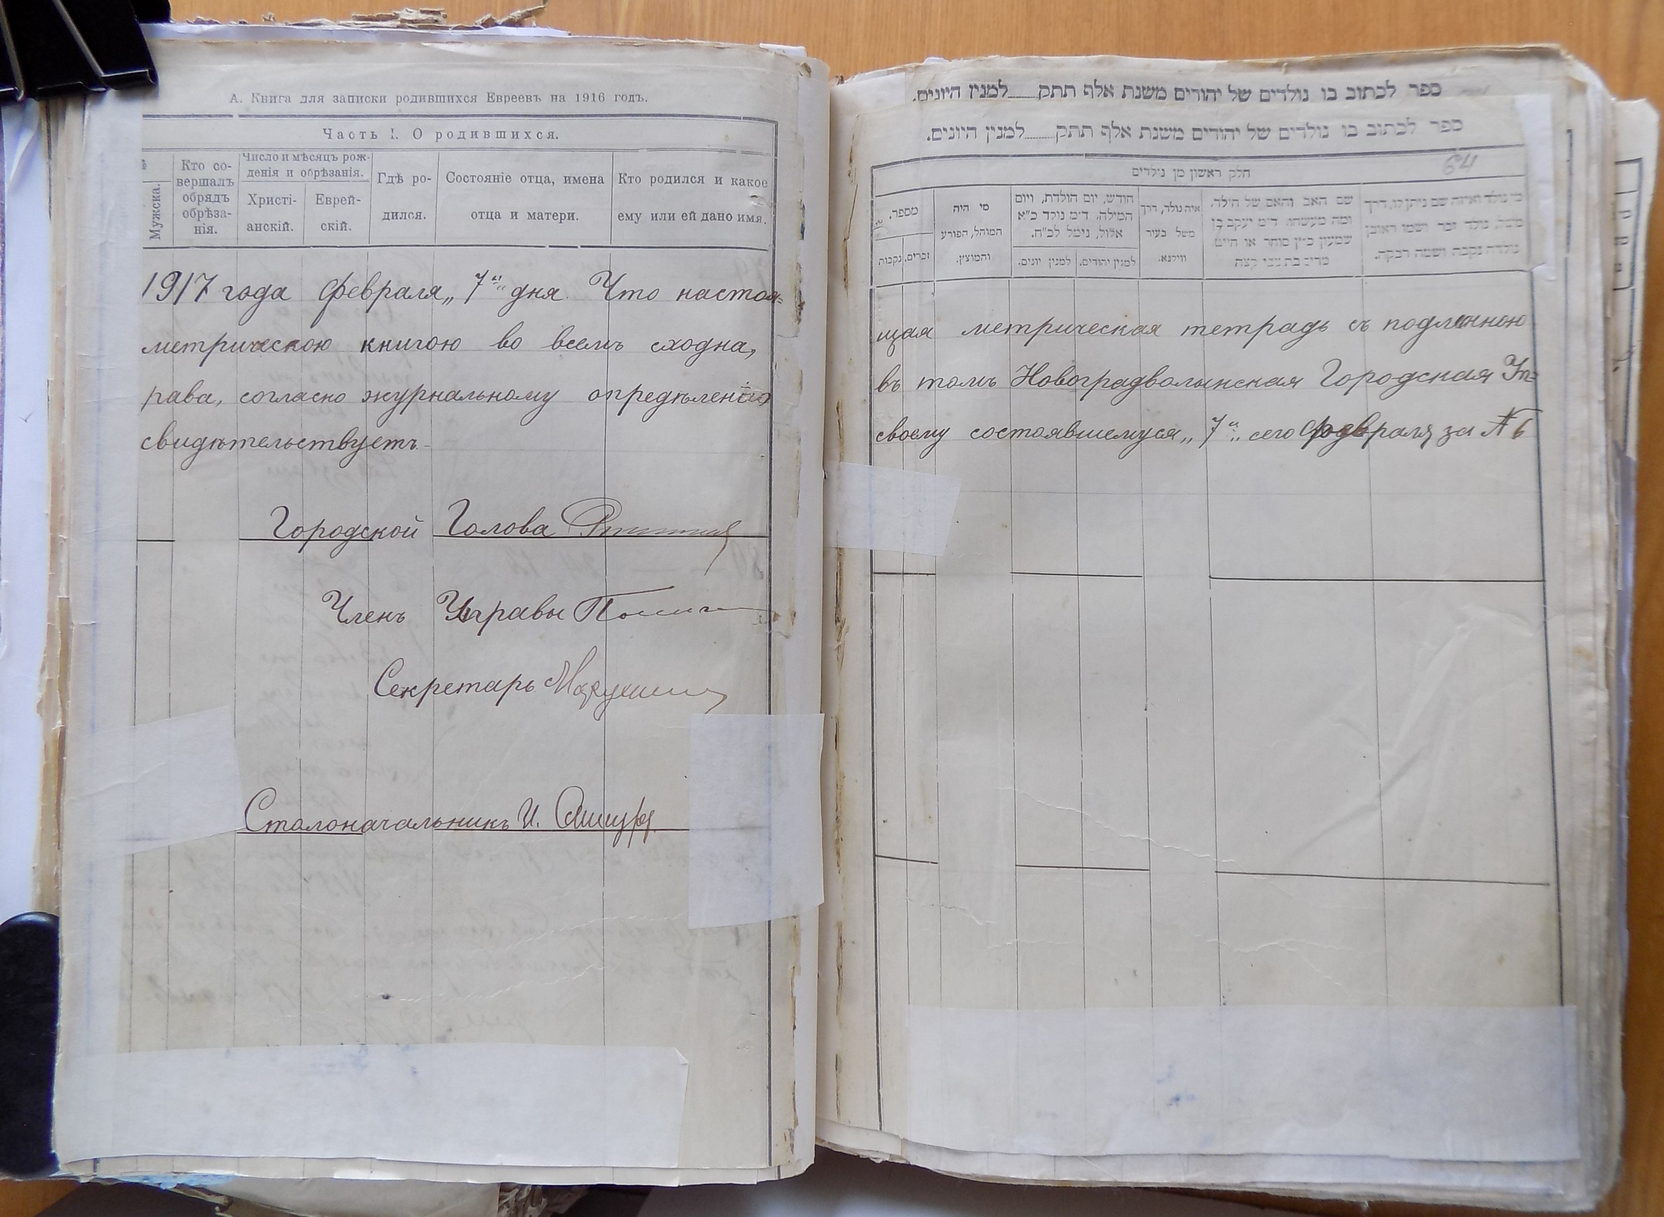 А. Книга для записки родившихся Евреевъ на 1916 годъ.
Часть I. О родившихся.
Мужска.
Кто со-
вершалъ
обрядъ
обрѣза-
нія.
Число и мѣсяцъ рож-
денія и обрѣзанія.
Христі-
анскій.
Еврей-
скій.
Гдѣ ро-
дился.
Состояніе отца, имена
отца и матери.
Кто родился и какое
ему или ей дано имя.
1917 года февраля „7“ дня. Что настоя-
метрическою книгою во всемъ сходна,
рава, согласно журнальному опредѣленію
свидѣтельствуетъ
Городской Голова
Членъ Управы
Секретарь
Столоначальникъ И.
ספר לכתוב בו נולדים של יהודים משנת אלף תתק......למנין היונים.
ספר לכתוב בו נולדים של יהודים משנת אלף תתק......למנין היונים.
64
חלק ראשון מן נולדים
מספר.
זכרים, נקבות
מי היה
המוהל, הפורע
והמוצץ.
חודש, יום הולדת, ויום
המילה, ד״מ נולד כ״א
אלול, נימל לכ״ח.
למנין יונים.
למנין יהודים.
איה נולד, דרך
משל בעיר
ווילנא.
שם האב והאם של הילד,
ומה מעשהו, ד״מ יעקב בן
שמעון כ״ץ סוחר או חייט
щая метрическая тетрадь съ подлинною
въ томъ Новоградволынская Городская Уп-
своему состоявшемуся „7“ сего февраля за № 6